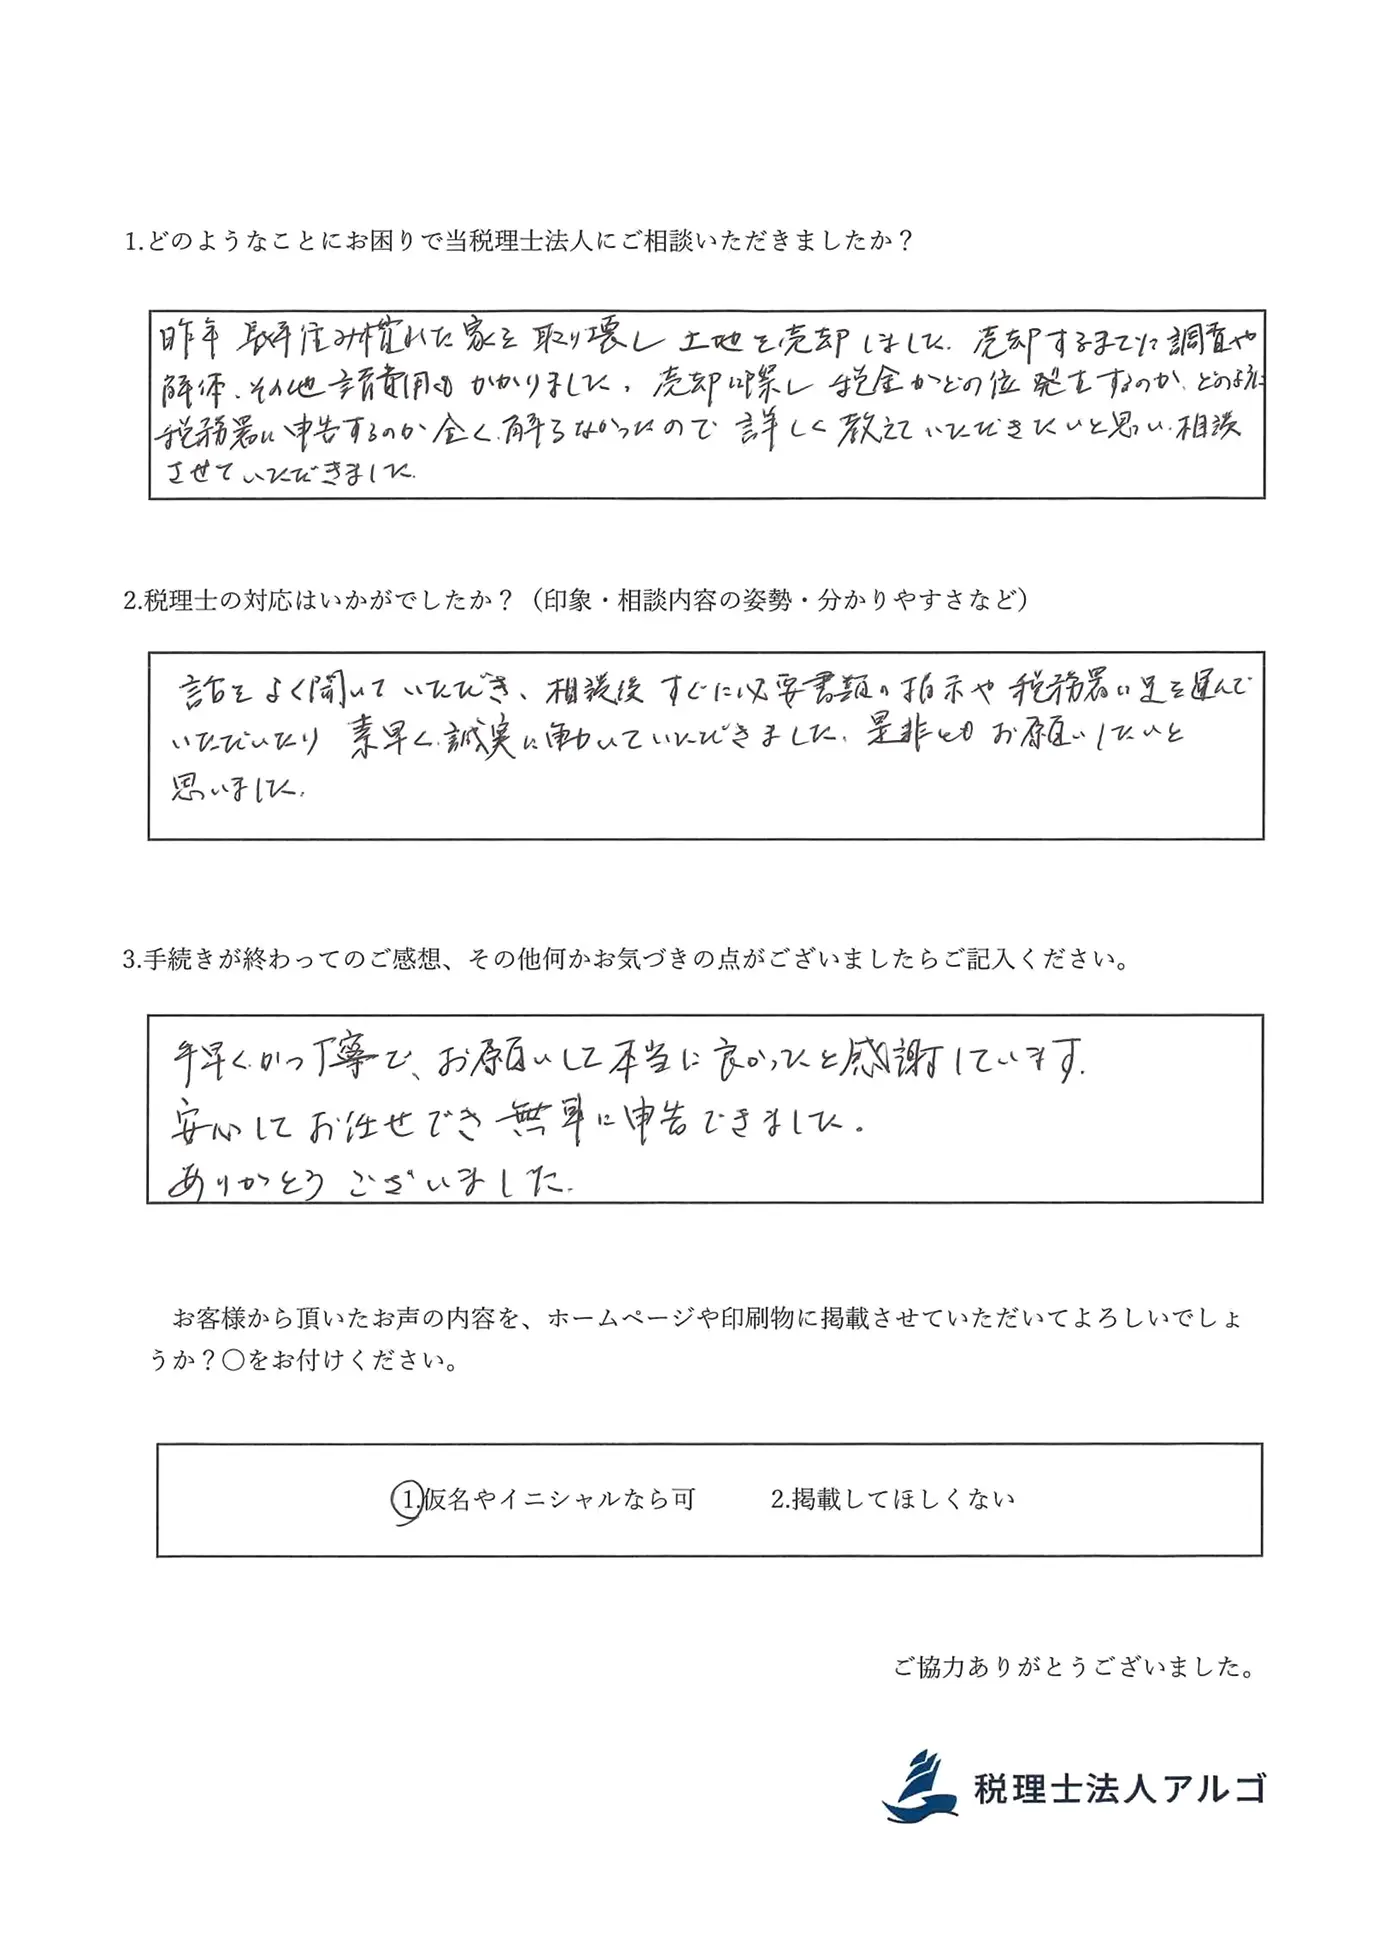 1.どのようなことにお困りで当税理士法人にご相談いただきましたか？
昨年 長年住み慣れた家を取り壊し 土地を売却しました。売却するまでに調査や
解体、その他諸費用もかかりました。売却に際し 税金がどの位発生するのか、どの様に
税務署に申告するのか全く解らなかったので 詳しく教えていただきたいと思い、相談
させていただきました。
2.税理士の対応はいかがでしたか？（印象・相談内容の姿勢・分かりやすさなど）
話をよく聞いていただき、相談後すぐに必要書類の指示や税務署に足を運んで
いただいたり 素早く、誠実に動いていただきました。是非ともお願いしたいと
思いました。
3.手続きが終わってのご感想、その他何かお気づきの点がございましたらご記入ください。
手早くかつ丁寧で、お願いして本当に良かったと感謝しています。
安心してお任せでき無事に申告できました。
ありがとうございました。
お客様から頂いたお声の内容を、ホームページや印刷物に掲載させていただいてよろしいでしょ
うか？〇をお付けください。
1.仮名やイニシャルなら可 2.掲載してほしくない
ご協力ありがとうございました。
税理士法人アルゴ